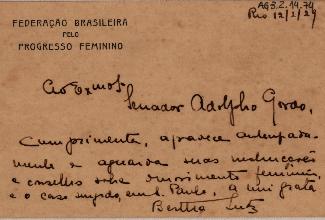 AGS.2.14.74
FEDERAÇÃO BRASILEIRA
PELO
PROGRESSO FEMININO
Rio 12/1/29
Ao Exmo
Senador Adolpho Gordo,
Cumprimenta, agradece antecipada-
mente e aguarda suas instrucções
e conselhos sobre movimento feminino,
e o caso S. Paulo, a mui grata
Bertha Lutz